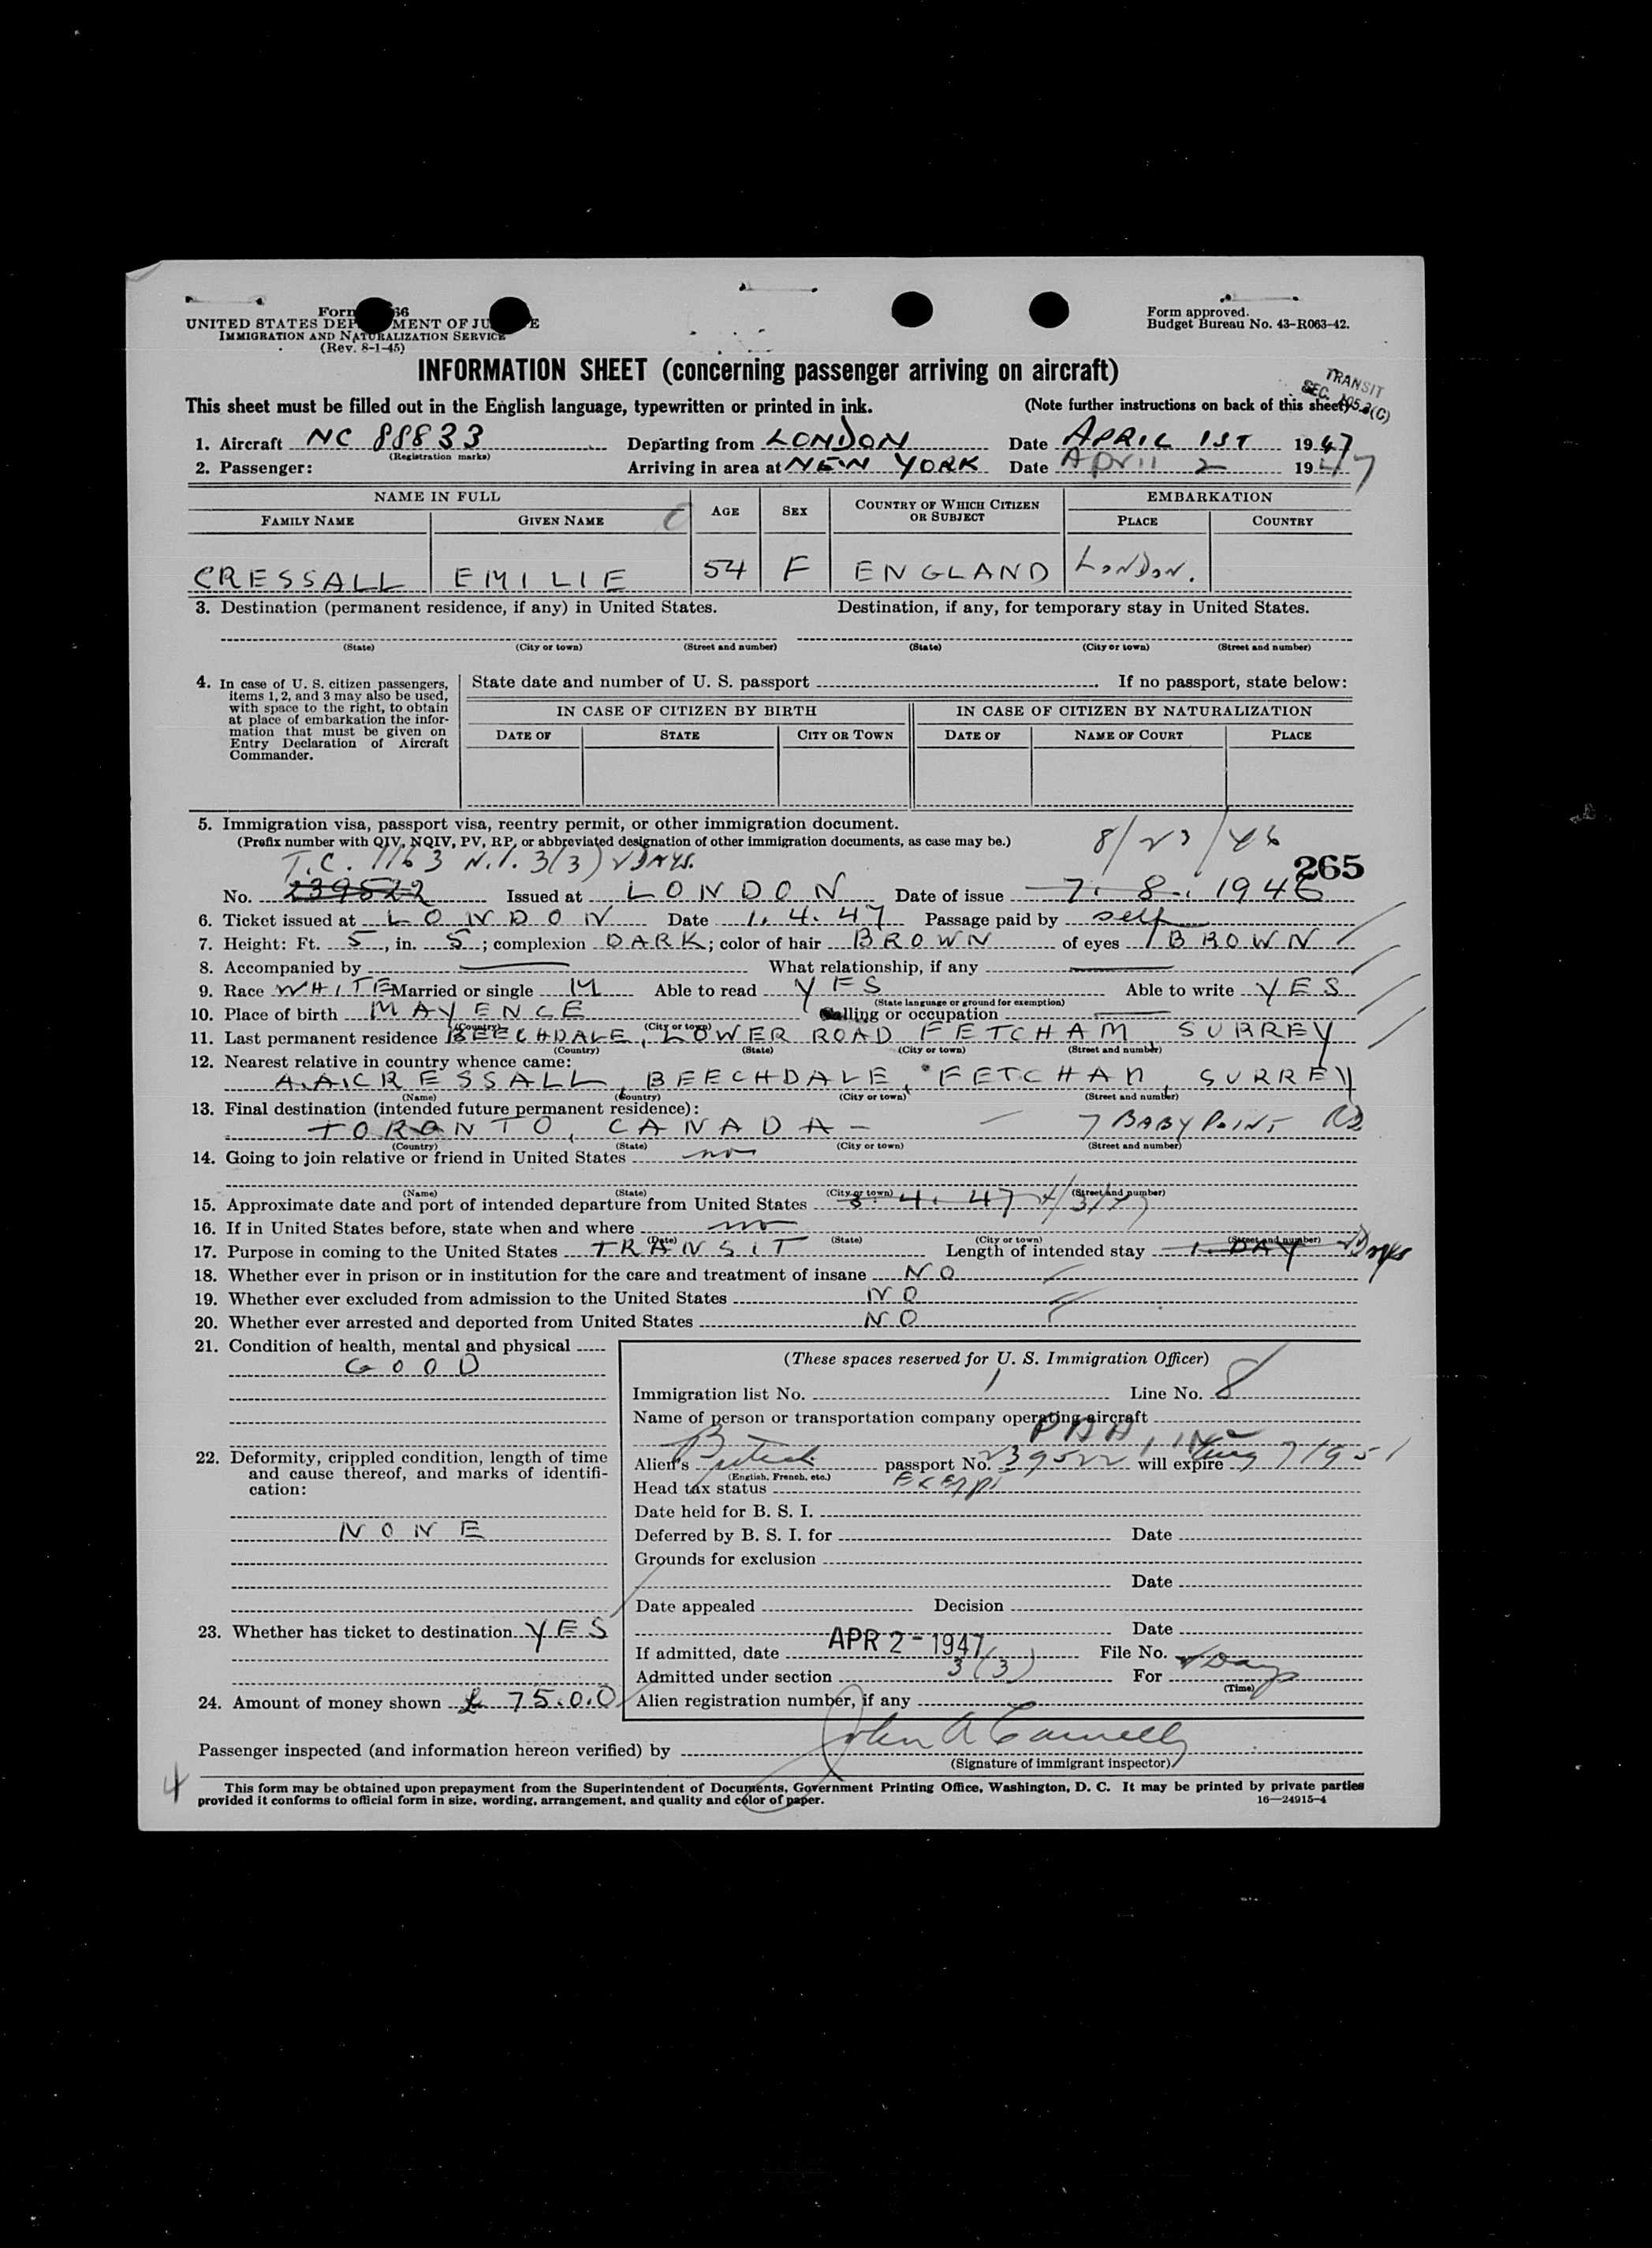 UNITED STATES DEPARTMENT OF JUSTICE
IMMIGRATION AND NATURALIZATION SERVICE
(Rev. 8-1-45)
Form approved.
Budget Bureau No. 43-R063-42.
INFORMATION SHEET (concerning passenger arriving on aircraft)
TRANSIT
SEC. 105.3(C)
This sheet must be filled out in the English language, typewritten or printed in ink. (Note further instructions on back of this sheet)
1. Aircraft NC 88833 Departing from LONDON Date APRIL 1ST 1947
(Registration marks)
2. Passenger: Arriving in area at NEW YORK Date April 2 1947
NAME IN FULL AGE SEX COUNTRY OF WHICH CITIZEN OR SUBJECT EMBARKATION
FAMILY NAME GIVEN NAME PLACE COUNTRY
CRESSALL EMILIE 54 F ENGLAND LONDON.
3. Destination (permanent residence, if any) in United States. Destination, if any, for temporary stay in United States.
(State) (City or town) (Street and number) (State) (City or town) (Street and number)
4. In case of U. S. citizen passengers, items 1, 2, and 3 may also be used, with space to the right, to obtain at place of embarkation the information that must be given on Entry Declaration of Aircraft Commander.
State date and number of U. S. passport If no passport, state below:
IN CASE OF CITIZEN BY BIRTH IN CASE OF CITIZEN BY NATURALIZATION
DATE OF STATE CITY OR TOWN DATE OF NAME OF COURT PLACE
5. Immigration visa, passport visa, reentry permit, or other immigration document.
(Prefix number with QIV, NQIV, PV, RP, or abbreviated designation of other immigration documents, as case may be.)
T.C. 1163 3(3) 8/23/46
265
No. 239522 Issued at LONDON Date of issue 7. 8. 1946
6. Ticket issued at LONDON Date 1. 4. 47 Passage paid by self
7. Height: Ft. 5, in. 5; complexion DARK; color of hair BROWN of eyes BROWN
8. Accompanied by What relationship, if any
9. Race WHITE Married or single M Able to read YES Able to write YES
(State language or ground for exemption)
10. Place of birth MAYENCE Calling or occupation
(Country) (City or town)
11. Last permanent residence BEECHDALE, LOWER ROAD FETCHAM SURREY
(Country) (State) (City or town) (Street and number)
12. Nearest relative in country whence came:
A.A. CRESSALL, BEECHDALE, FETCHAM, SURREY
(Name) (Country) (City or town) (Street and number)
13. Final destination (intended future permanent residence):
TORONTO, CANADA - 7 BABY POINT RD
(Country) (State) (City or town) (Street and number)
14. Going to join relative or friend in United States no
(Name) (State) (City or town) (Street and number)
15. Approximate date and port of intended departure from United States 3. 4. 47 4/3/47
16. If in United States before, state when and where no
(Date) (State) (City or town) (Street and number)
17. Purpose in coming to the United States TRANSIT Length of intended stay 1 DAY
18. Whether ever in prison or in institution for the care and treatment of insane NO
19. Whether ever excluded from admission to the United States NO
20. Whether ever arrested and deported from United States NO
21. Condition of health, mental and physical
GOOD
22. Deformity, crippled condition, length of time and cause thereof, and marks of identification:
NONE
23. Whether has ticket to destination YES
24. Amount of money shown £ 75.0.0
(These spaces reserved for U. S. Immigration Officer)
Immigration list No. 1 Line No. 8
Name of person or transportation company operating aircraft
PAA, INC
Alien's British passport No. 239522 will expire Aug 7 1951
(English, French, etc.)
Head tax status Exempt
Date held for B. S. I.
Deferred by B. S. I. for Date
Grounds for exclusion
Date
Date appealed Decision
Date
If admitted, date APR 2 - 1947 File No.
Admitted under section 3(3) For 2 Days
(Time)
Alien registration number, if any
Passenger inspected (and information hereon verified) by John A
(Signature of immigrant inspector)
4
This form may be obtained upon prepayment from the Superintendent of Documents, Government Printing Office, Washington, D. C. It may be printed by private parties
provided it conforms to official form in size, wording, arrangement, and quality and color of paper. 16—24915-4